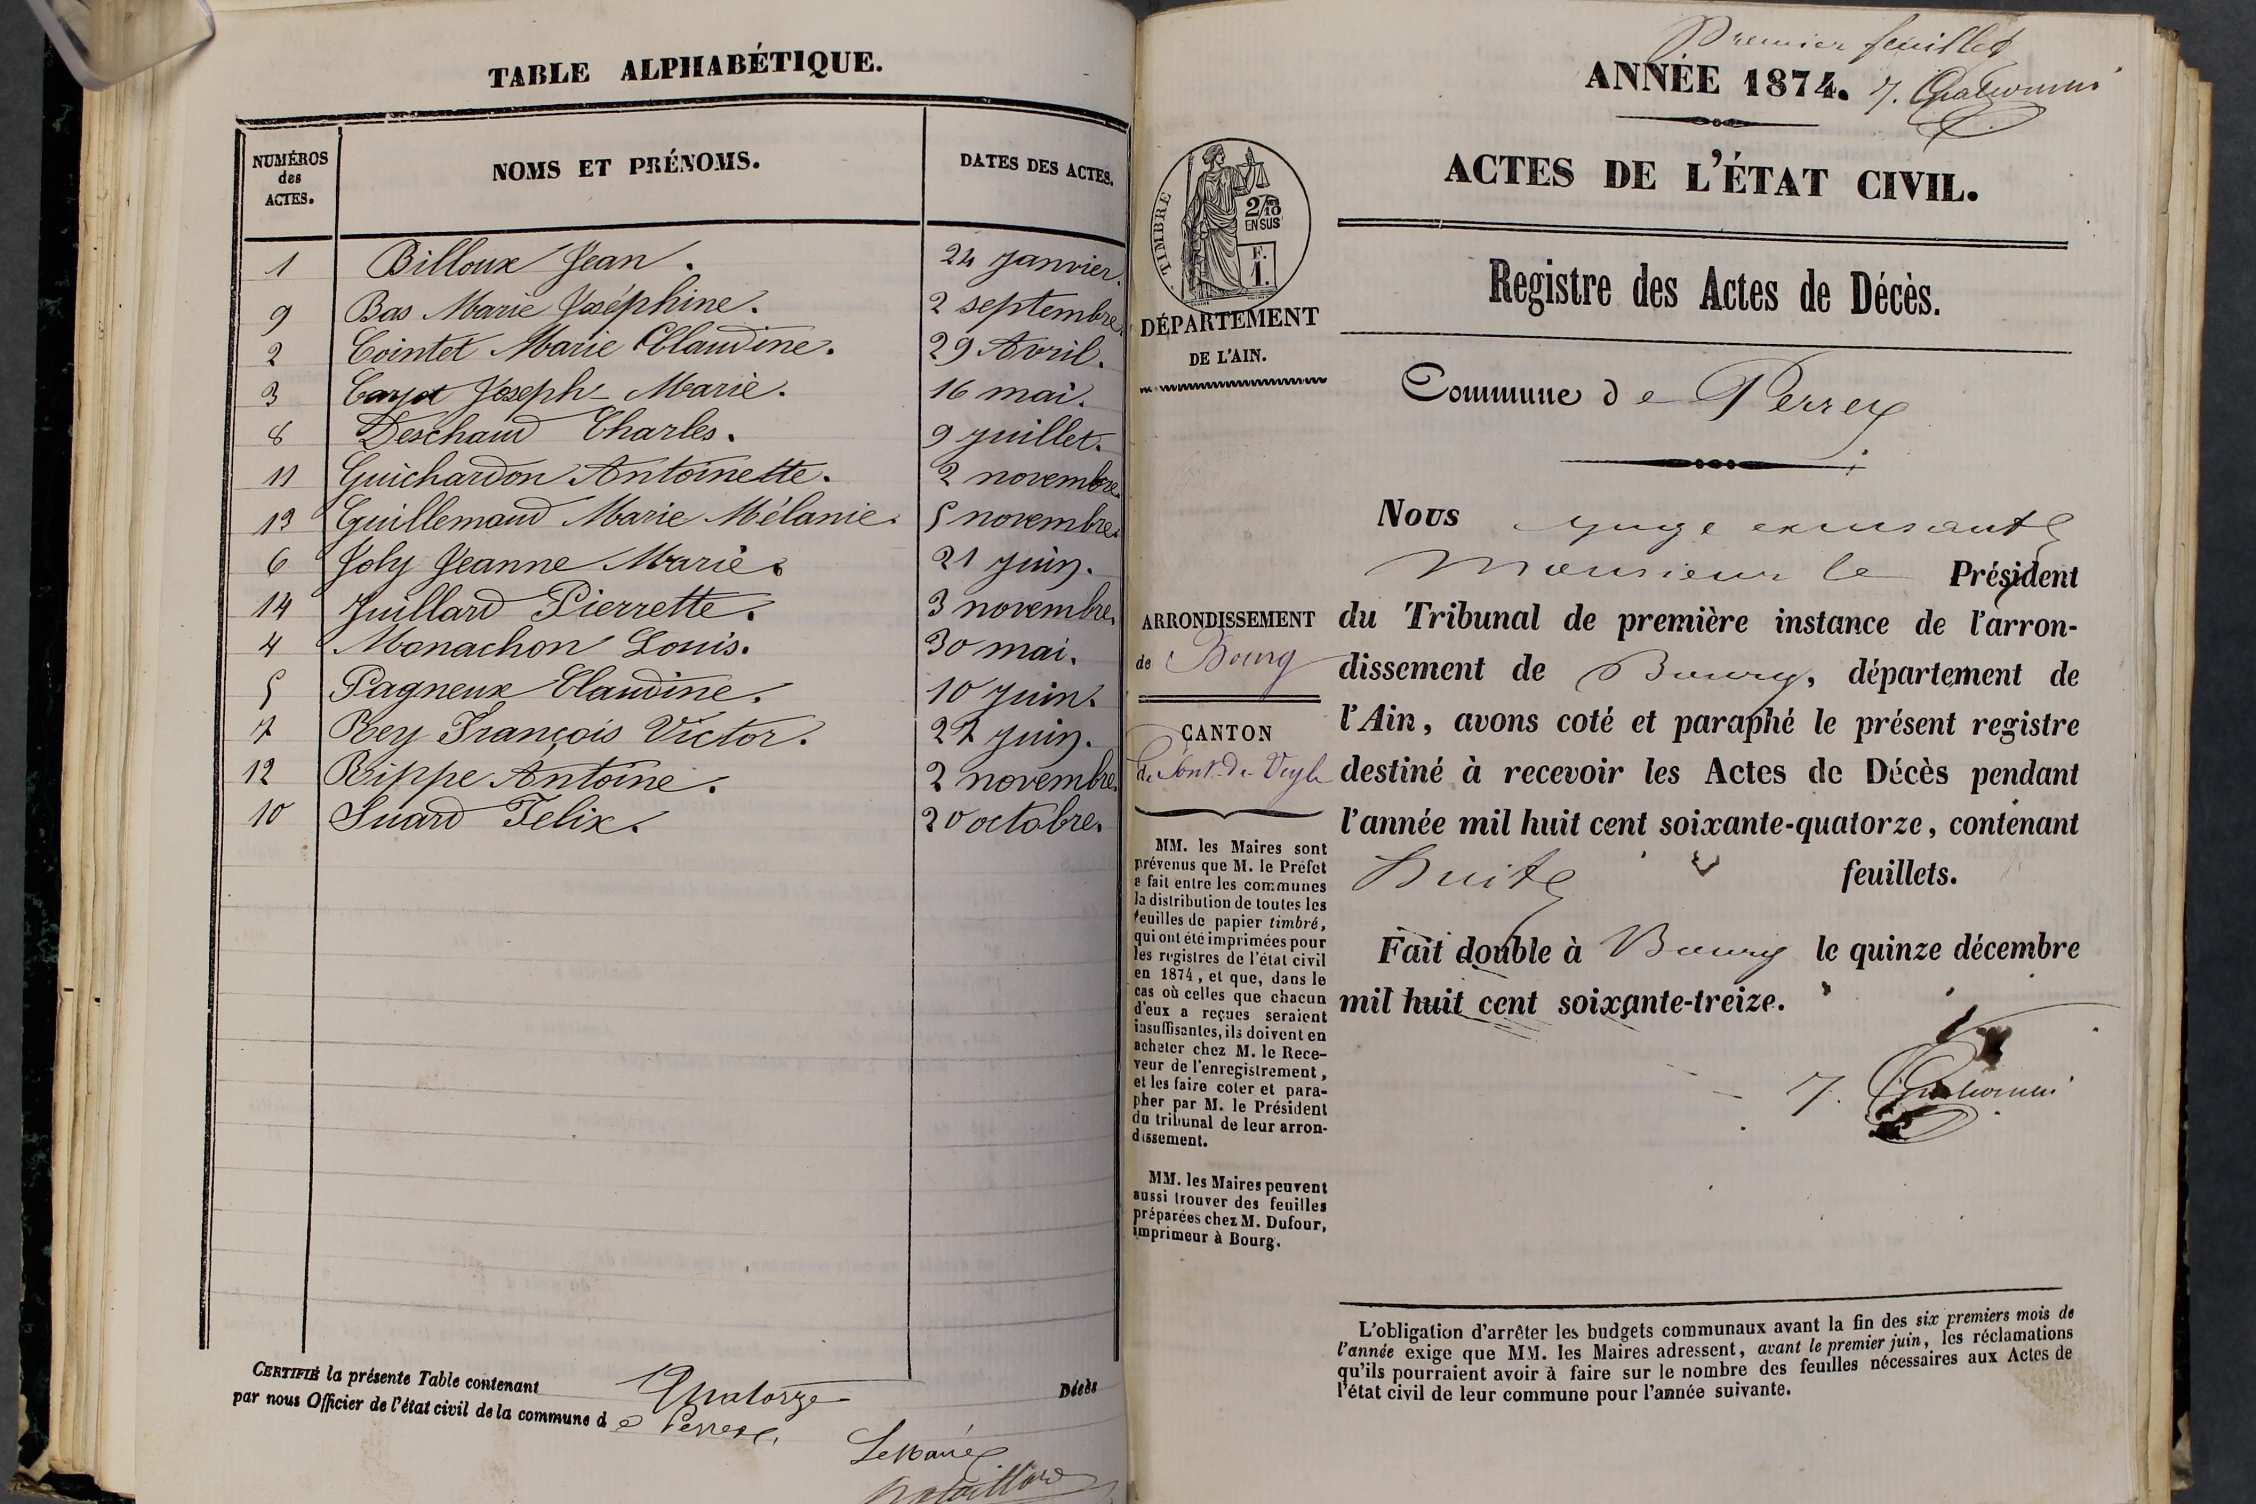 TABLE ALPHABÉTIQUE.
NUMÉROS
des
ACTES.
NOMS ET PRÉNOMS.
DATES DES ACTES.
1 Billoux Jean. 24 Janvier.
9 Bas Marie Joséphine. 2 septembre.
2 Cointet Marie Claudine. 29 Avril.
3 Joseph-Marie. 16 mai.
8 Deschaud Charles. 9 juillet.
11 Guichardon Antoinette. 2 novembre.
13 Guillemaud Marie Mélanie. 5 novembre.
6 Joly Jeanne Marie. 21 juin.
14 Juillard Pierrette. 3 novembre.
4 Monachon Louis. 30 mai.
5 Pagneux Claudine. 10 juin.
7 Rey François Victor. 27 juin.
12 Rippe Antoine. 2 novembre.
10 Suard Felix. 20 octobre.
CERTIFIÉ la présente Table contenant Quatorze Décès
par nous Officier de l'état civil de la commune de Perrex.
Le Maire
Premier feuillet
ANNÉE 1874.
ACTES DE L'ÉTAT CIVIL.
TIMBRE
2/10
EN SUS
F.
1.
DÉPARTEMENT
DE L'AIN.
Registre des Actes de Décès.
Commune de Perrex
ARRONDISSEMENT
de Bourg
CANTON
de Pont-de-Veyle
MM. les Maires sont
prévenus que M. le Préfet
a fait entre les communes
la distribution de toutes les
feuilles de papier timbré,
qui ont été imprimées pour
les registres de l'état civil
en 1874, et que, dans le
cas où celles que chacun
d'eux a reçues seraient
insuffisantes, ils doivent en
acheter chez M. le Rece-
veur de l'enregistrement,
et les faire coter et para-
pher par M. le Président
du tribunal de leur arron-
dissement.
MM. les Maires peuvent
aussi trouver des feuilles
préparées chez M. Dufour,
imprimeur à Bourg.
Nous juge
Monsieur le Président
du Tribunal de première instance de l'arron-
dissement de Bourg, département de
l'Ain, avons coté et paraphé le présent registre
destiné à recevoir les Actes de Décès pendant
l'année mil huit cent soixante-quatorze, contenant
Huit feuillets.
Fait double à Bourg le quinze décembre
mil huit cent soixante-treize.
L'obligation d'arrêter les budgets communaux avant la fin des six premiers mois de
l'année exige que MM. les Maires adressent, avant le premier juin, les réclamations
qu'ils pourraient avoir à faire sur le nombre des feuilles nécessaires aux Actes de
l'état civil de leur commune pour l'année suivante.